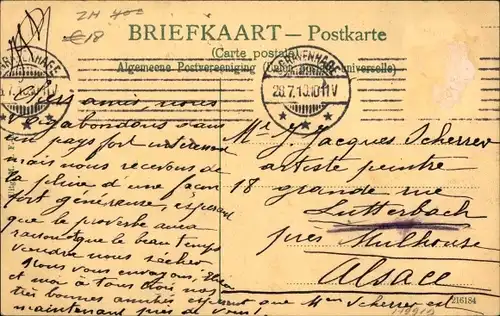 ZH 40=
€18
BRIEFKAART — Postkarte
(Carte postale)
Algemeene Postvereeniging (Union postale universelle)
'S GRAVENHAGE
28.7.10.10-11V
amis, nous
vagabondons dans
un pays fort
mais nous recevons de
la pluie d'une façon
fort généreuse, espérant
que le proverbe aura
raison et que le beau temps
vendra nous sécher
Nous vous envoyons,
et moi à tous trois nos
très bonnes amitiés espérant que Mme Scherrer est
maintenant près de vous!
Mr J. Jacques Scherrer
artiste peintre
18 grande rue
Lutterbach
près Mulhouse
Alsace
216184